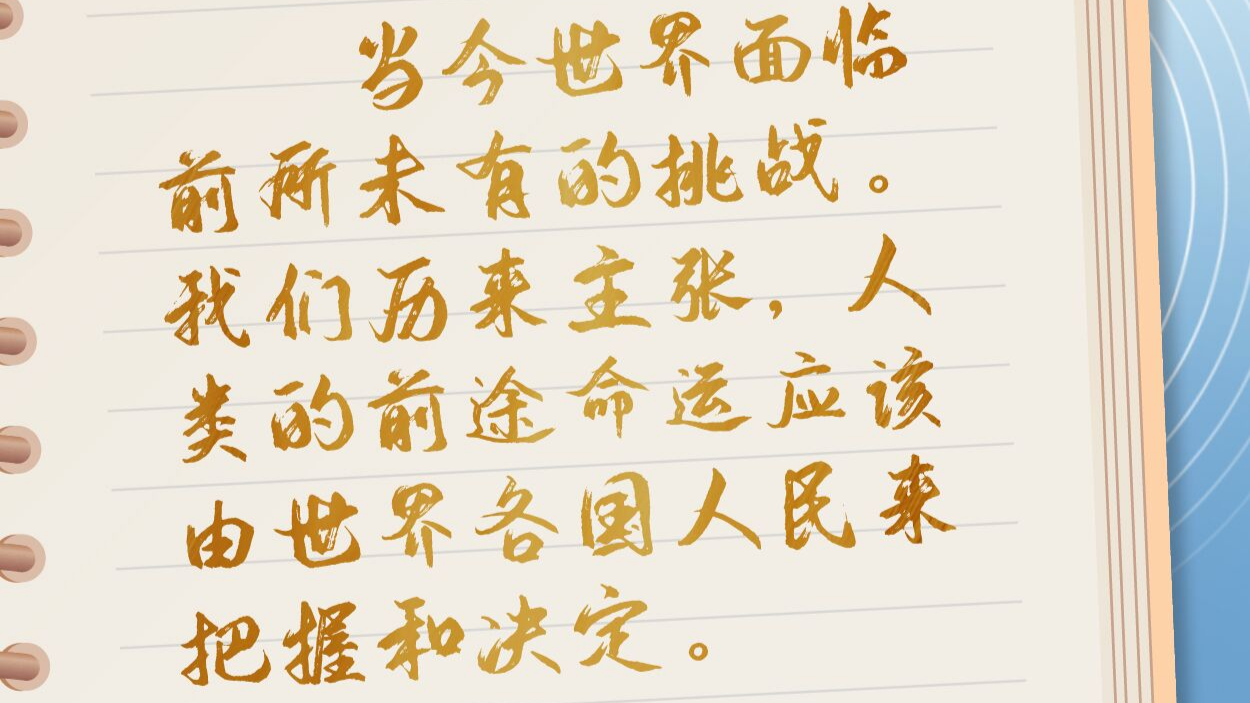 当今世界面临
前所未有的挑战。
我们历来主张,人
类的前途命运应该
由世界各国人民来
把握和决定。